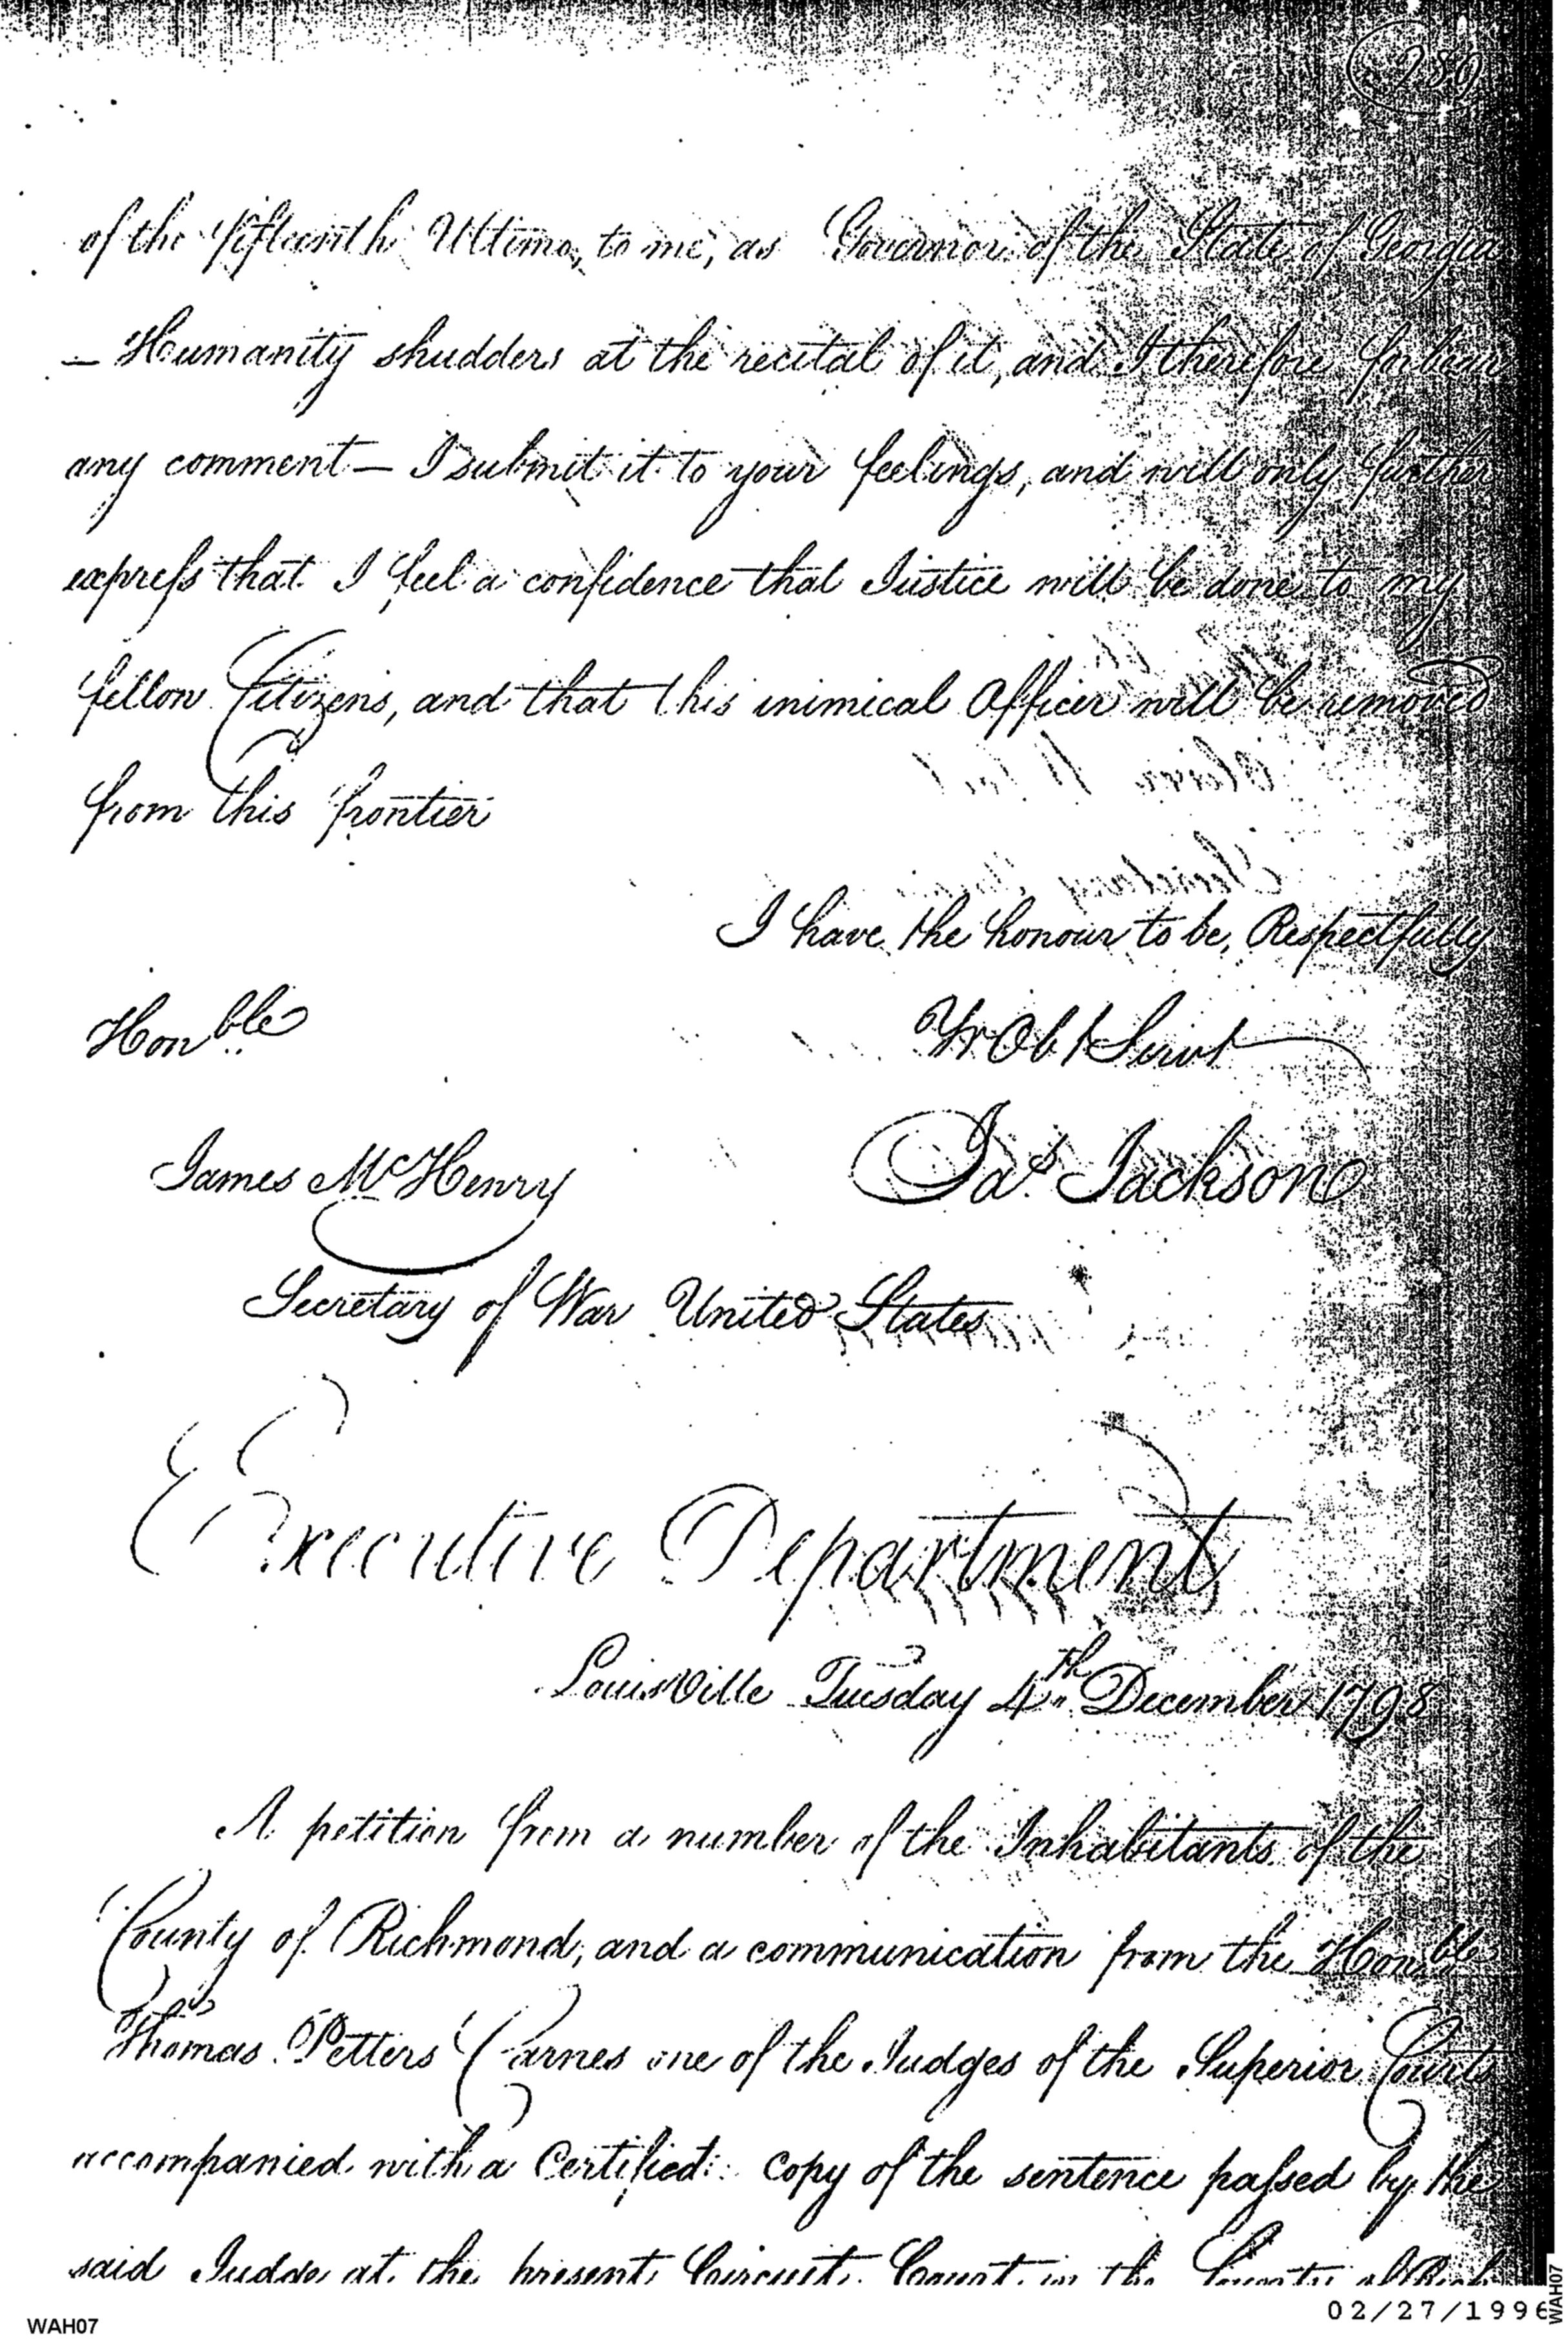 280
of the fifteenth Ultimo, to me, as Governor of the State of Georgia
— Humanity shudders at the recital of it, and I therefore forbear
any comment — I submit it to your feelings, and will only further
express that I feel a confidence that Justice will be done to my
fellow Citizens, and that this inimical Officer will be removed
from this frontier
I have the honour to be, Respectfully
Honble
Yr Obt Servt
James McHenry
Jas. Jackson
Secretary of War United States
Executive Department
Louisville Tuesday 4th December 1798
A petition from a number of the Inhabitants of the
County of Richmond, and a communication from the Honble
Thomas Petters Carnes one of the Judges of the Superior Courts
accompanied with a Certified copy of the sentence passed by the
said Judge at the present Circuit Court in the County of
02/27/1996
WAH07
WAH07